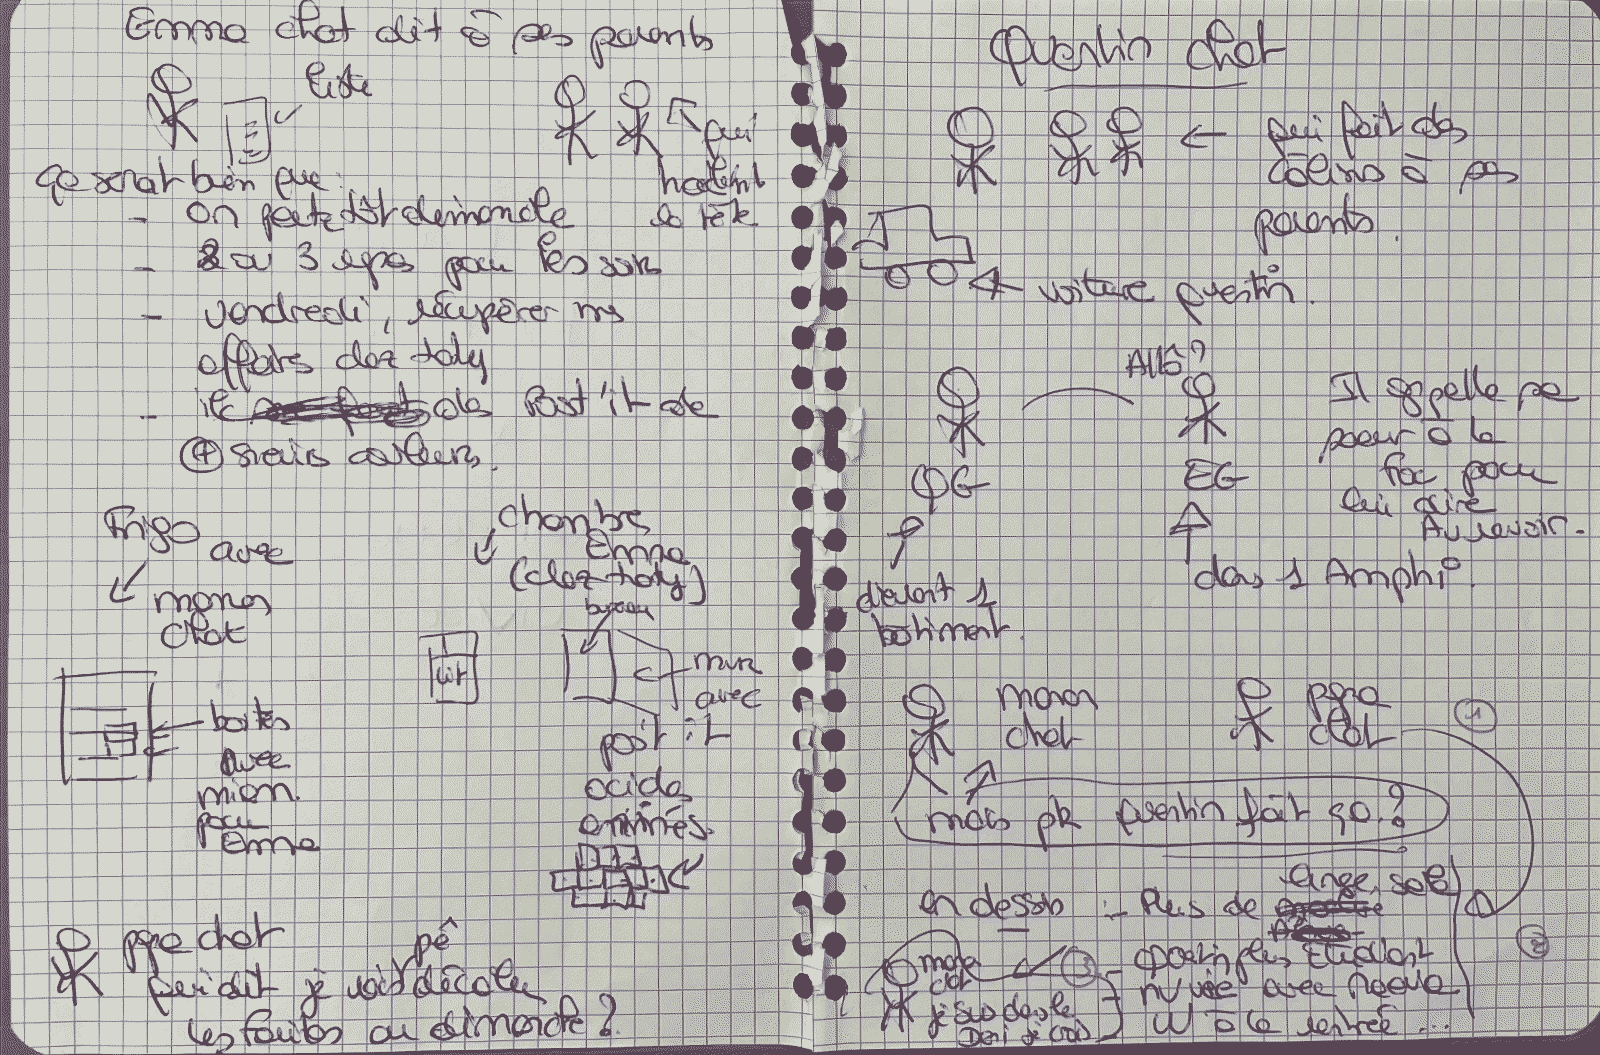 Emma chat dit à ses parents
liste
qui
hochent
la tête
ça serait bien que :
- on parte tôt dimanche
- 2 ou 3 repas pour les soirs
- vendredi, récupérer mes
affaires chez taly
- des Post'it de
⊕ sieurs couleurs.
Frigo
avec
maman
chat
chambre
Emma
(chez taly)
bureau
lit
mur
avec
post it
acides
aminés.
boites
avec
miam.
pour
Emma
papa chat
pê
qui dit je vais décoller
les fuites au dimanche ?
Quentin chat
qui fait des
câlins à ses
parents.
voiture quentin.
Allô ?
Il appelle sa
soeur à la
fac pour
lui dire
Au revoir.
QG
EG
devant 1
batiment.
dans 1 Amphi.
maman
chat
papa
chat
1
mais pk quentin fait ça ?
en dessin : - Plus de
linge sale
2
3
- quentin plus étudiant
maman
chat
je suis dans le
Deni je crois
à la rentrée ...